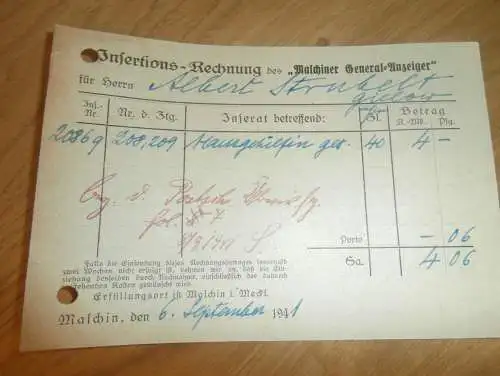 Insertions-Rechnung des „Malchiner General-Anzeiger"
für Herrn Albert Strubelt
Gielow
Ins.-Nr. Nr. d. Ztg. Inserat betreffend: Zl. Betrag
R.-Mk. Pfg.
20869 208,209 Hausgehilfin ges. 40 4 –
Porto – 06
Falls die Einsendung dieses Rechnungsbetrages innerhalb
zwei Wochen nicht erfolgt ist, nehmen wir an, daß die Ein-
ziehung desselben durch Nachnahme, einschließlich der dadurch
entstehenden Kosten gewünscht wird.
Sa. 4 06
Erfüllungsort ist Malchin i. Meckl.
Malchin, den 6. September 1941